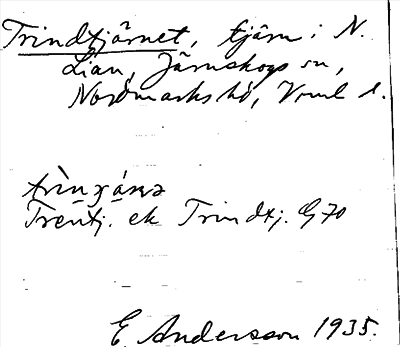 Trindtjärnet, tjärn i N.
Lian, Järnskogs sn,
Nordmarks hd, Vrml l.
Trentj. ek Trindtj. G 70
E. Andersson 1935.